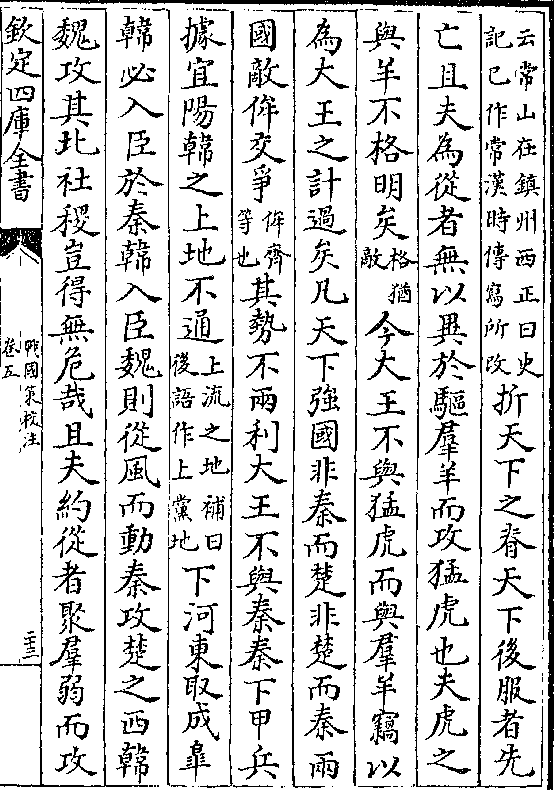 云常山在鎮州西正曰史記已作常漢時傳寫所改折天下之脊天下後服者先
亡且夫為從者無以異於驅羣羊而攻猛虎也夫虎之
與羊不格明矣格猶敵今大王不與猛虎而與羣羊竊以
為大王之計過矣凡天下強國非秦而楚非楚而秦兩
國敵侔交爭侔齊等也其勢不兩利大王不與秦秦下甲兵
據宜陽韓之上地不通上流之地補曰後語作上黨地下河東取成臯
韓必入臣於秦韓入臣魏則從風而動秦攻楚之西韓
魏攻其北社稷豈得無危哉且夫約從者聚羣弱而攻
欽定四庫全書
戰國策校注
卷五
二十三